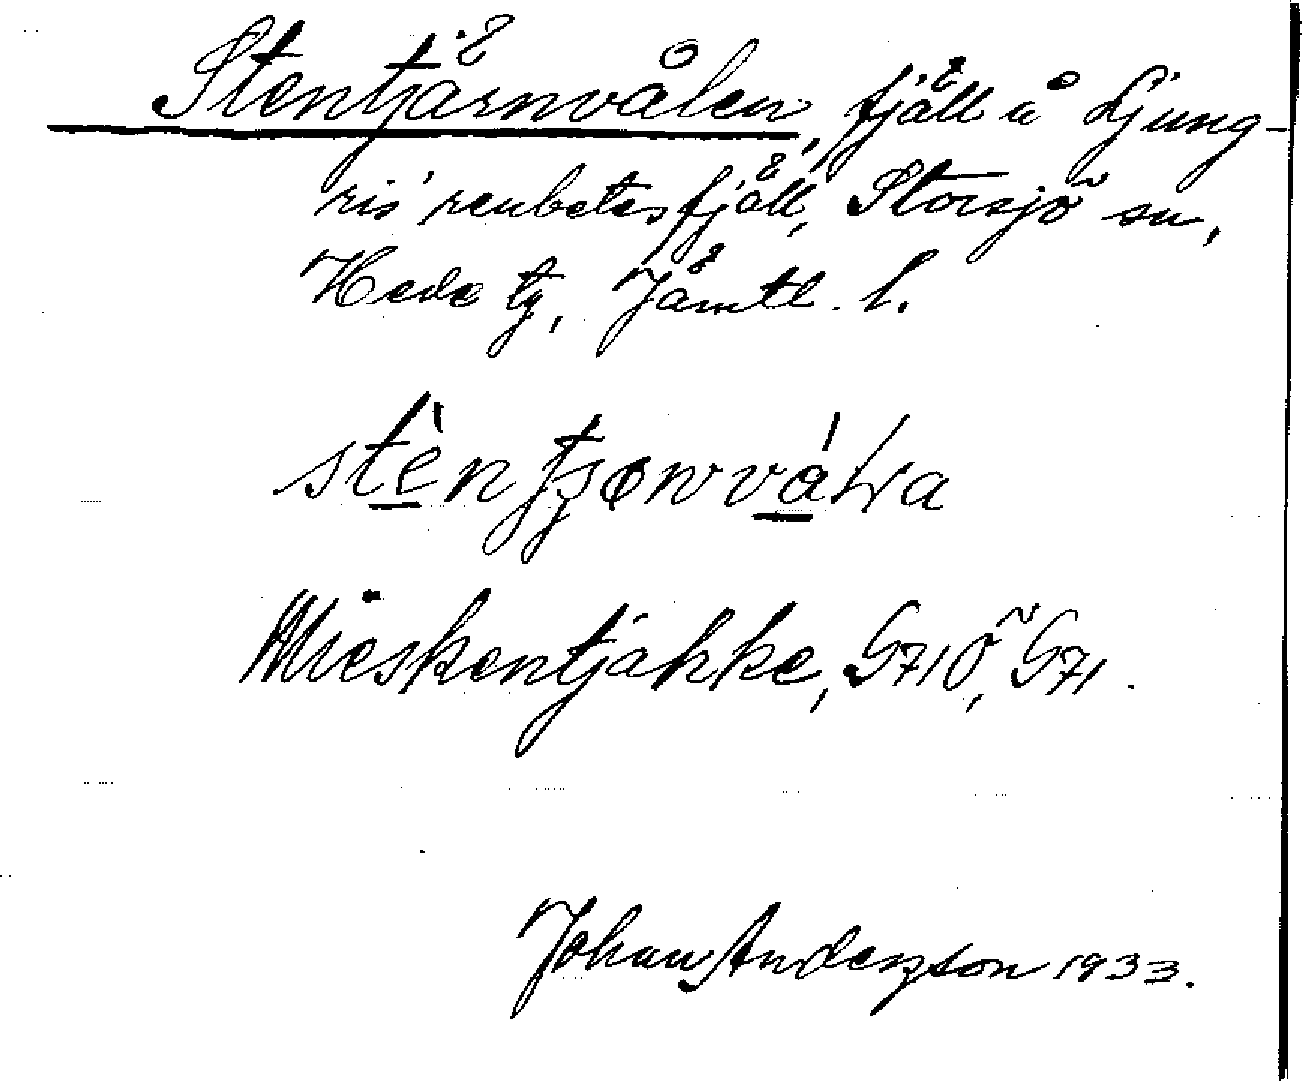 Stentjärnvålen, fjäll å Ljung-
ris' renbetesfjäll, Storsjö sn,
Hede tg, Jämtl. l.
Mieskentjakke, G71Ö, G71.
Johan Anderzson 1933.